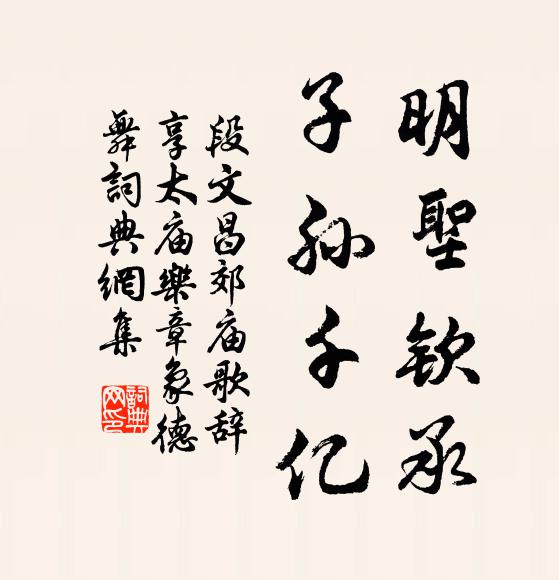 明聖欽承
子孙千亿
段文昌郊庙歌辞
享太庙樂章象德
舞詞典網集
詞典
网印